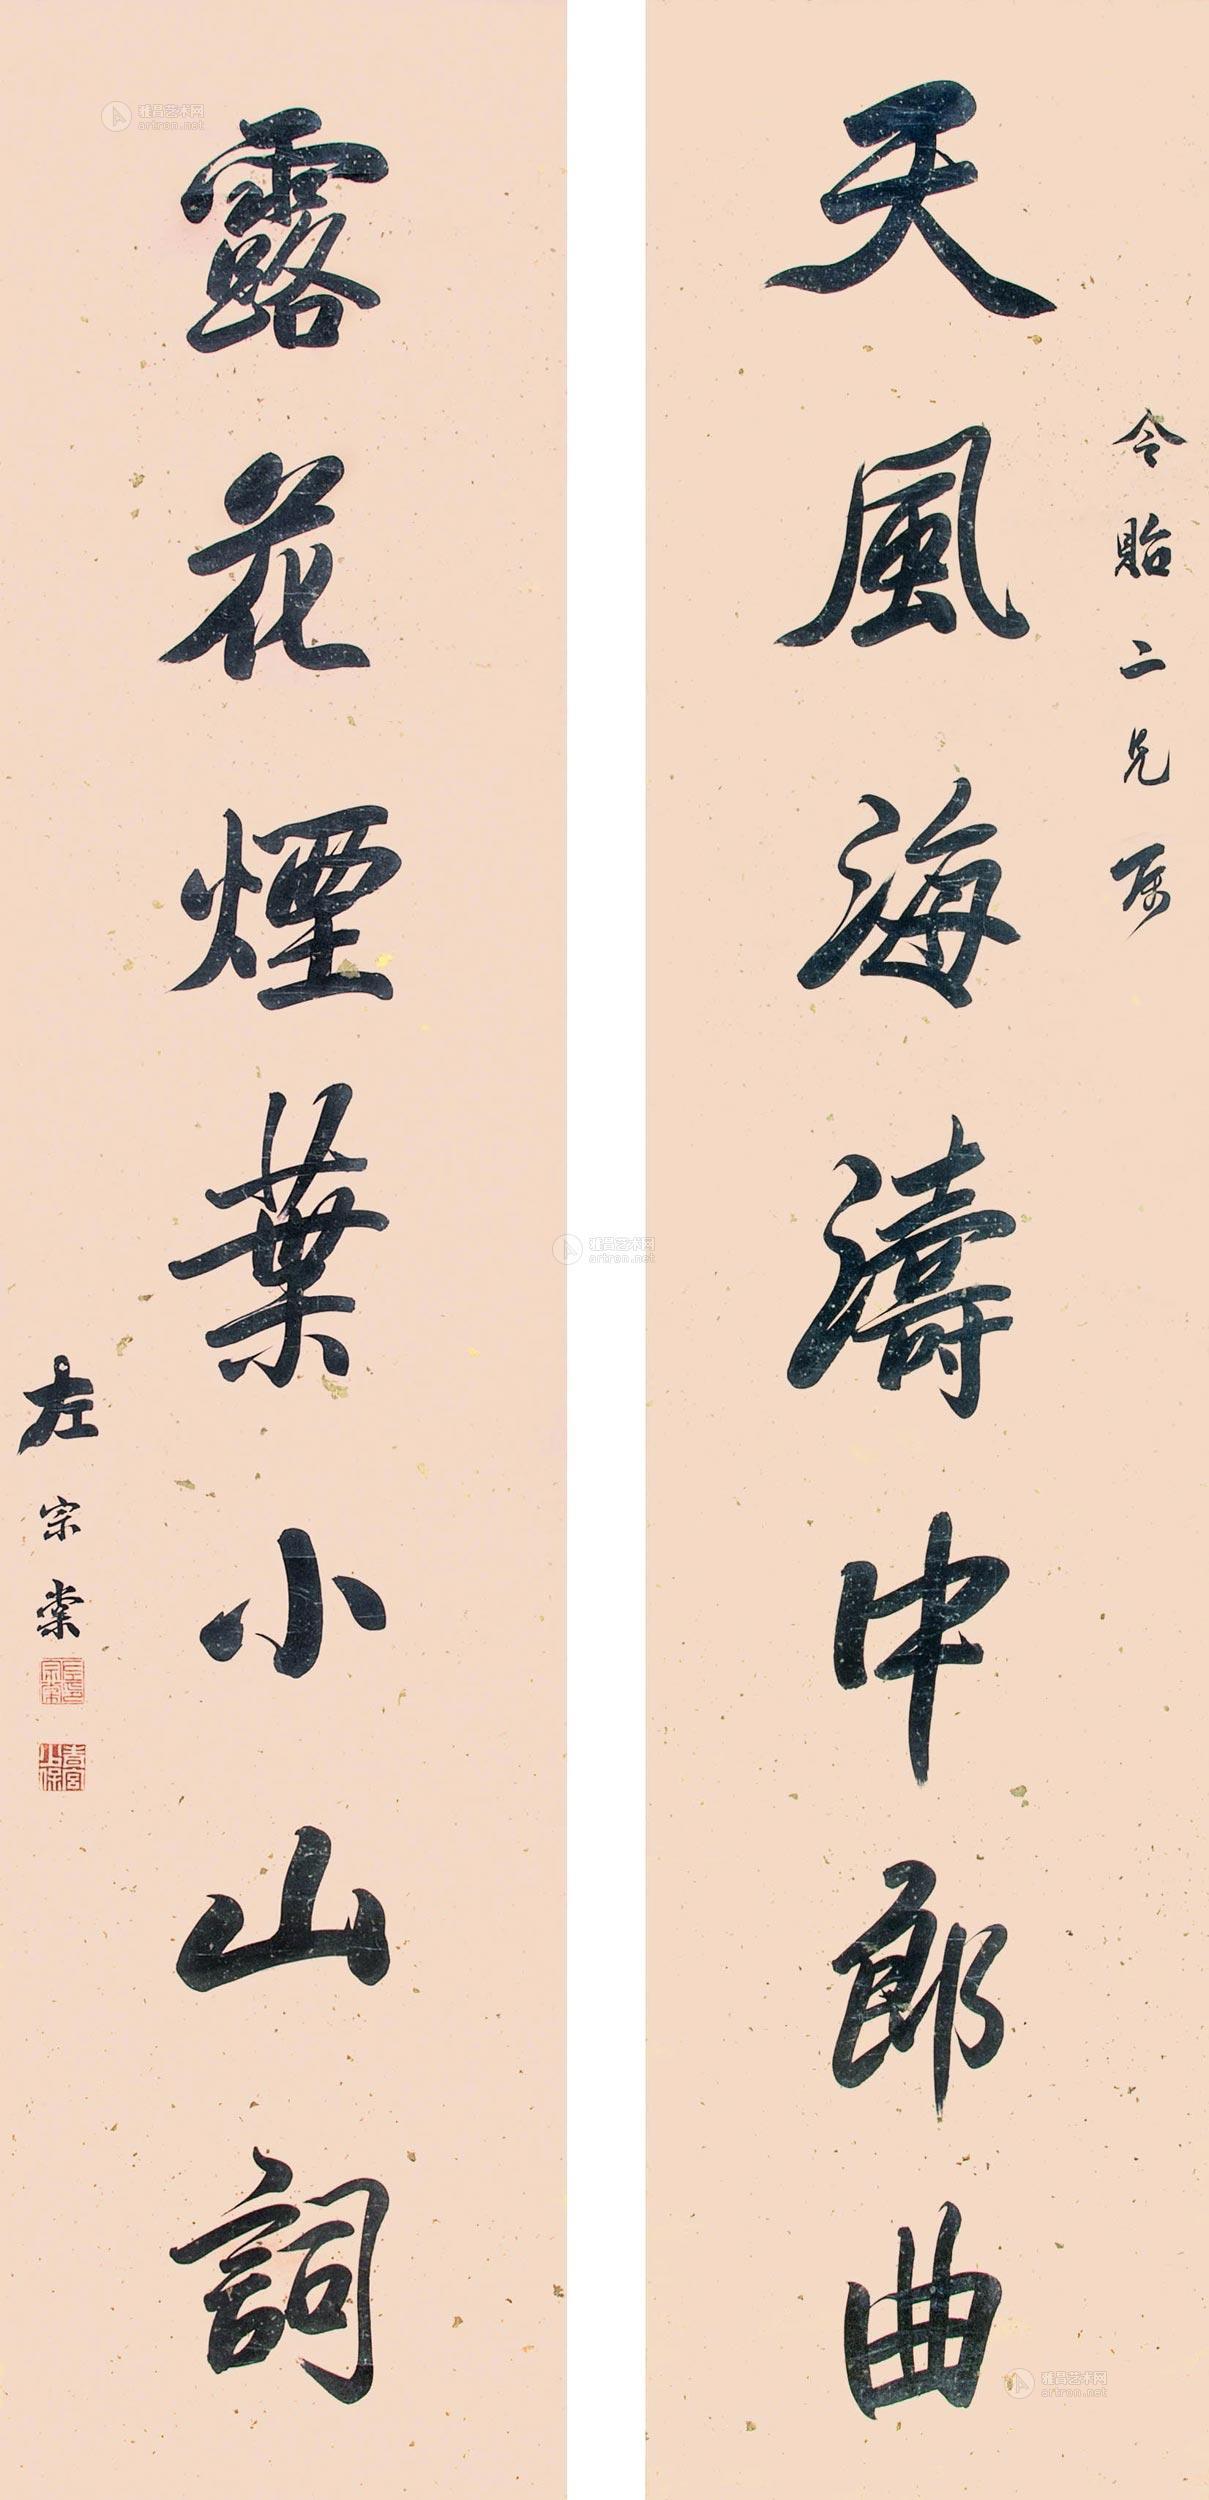 令貽二兄属
天風海濤中郎曲
露花煙葉小山詞
左宗棠
雅昌艺术网
artron.net
雅昌艺术网
artron.net
雅昌艺术网
artron.net